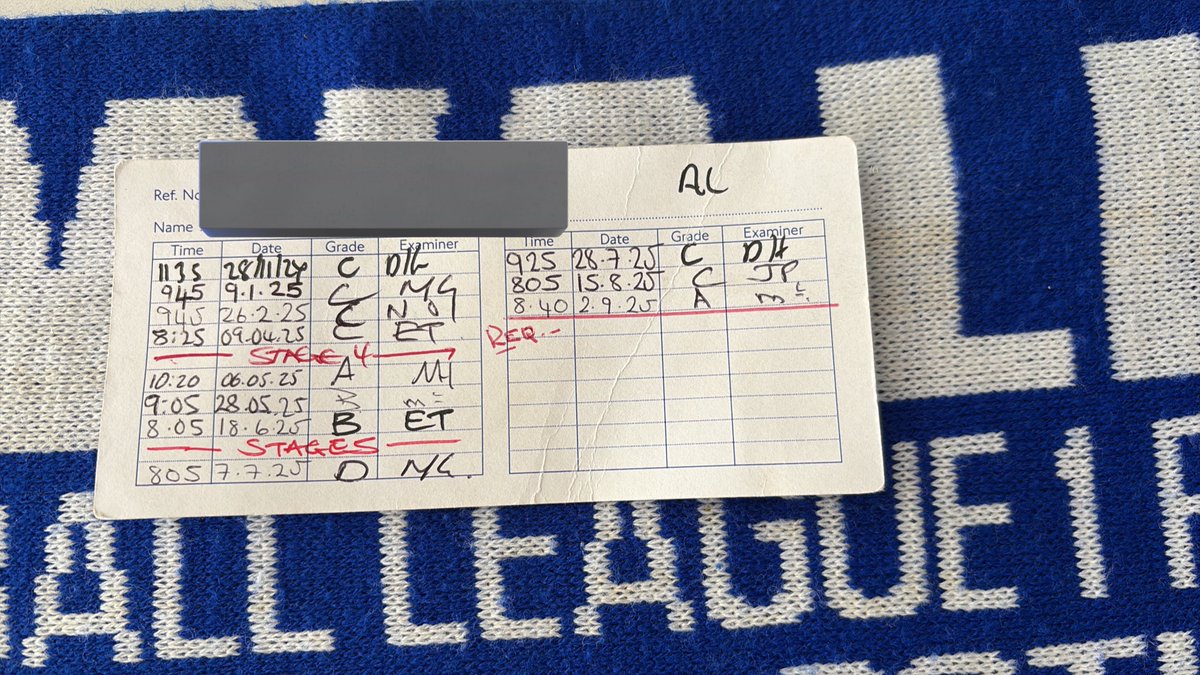 AL
Ref. No
Name
Time Date Grade Examiner
1135 28/11/24 C DH
945 9.1.25 C MG
945 26.2.25 C
8:25 09.04.25 C ET
STAGE 4
10:20 06.05.25 A MH
9:05 28.05.25
8.05 18.6.25 B ET
STAGE 5
805 7.7.25 D MG.
Time Date Grade Examiner
925 28.7.25 C DH
805 15.8.25 C JP
8.40 2.9.25 A
REQ.-
ALL LEAGUE 1